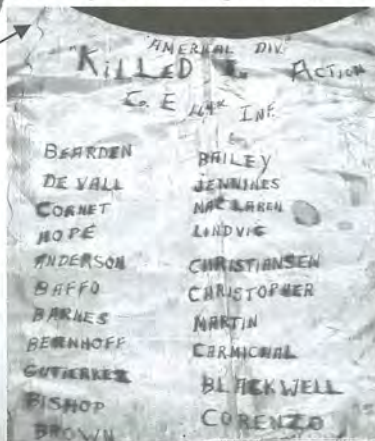 "AMERICAL DIV."
"KILLED IN ACTION
Co. E 164th INF.
BEARDEN
DE VALL
CORNET
HOPE
ANDERSON
BAFFO
BARNES
BERNHOFF
GUTIERREZ
BISHOP
BROWN
BAILEY
JENNINGS
MAC LAREN
LINDVIG
CHRISTIANSEN
CHRISTOPHER
MARTIN
CARMICHAL
BLACKWELL
CORENZO